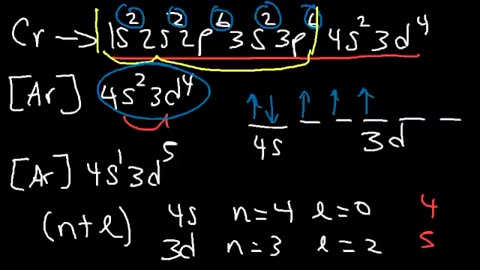 Cr → 1s² 2s² 2p⁶ 3s² 3p⁶ 4s² 3d⁴
[Ar] 4s² 3d⁴
↑↓ ↑ ↑ ↑
4s 3d
[Ar] 4s¹ 3d⁵
(n+l) 4s n=4 l=0 4
3d n=3 l=2 5